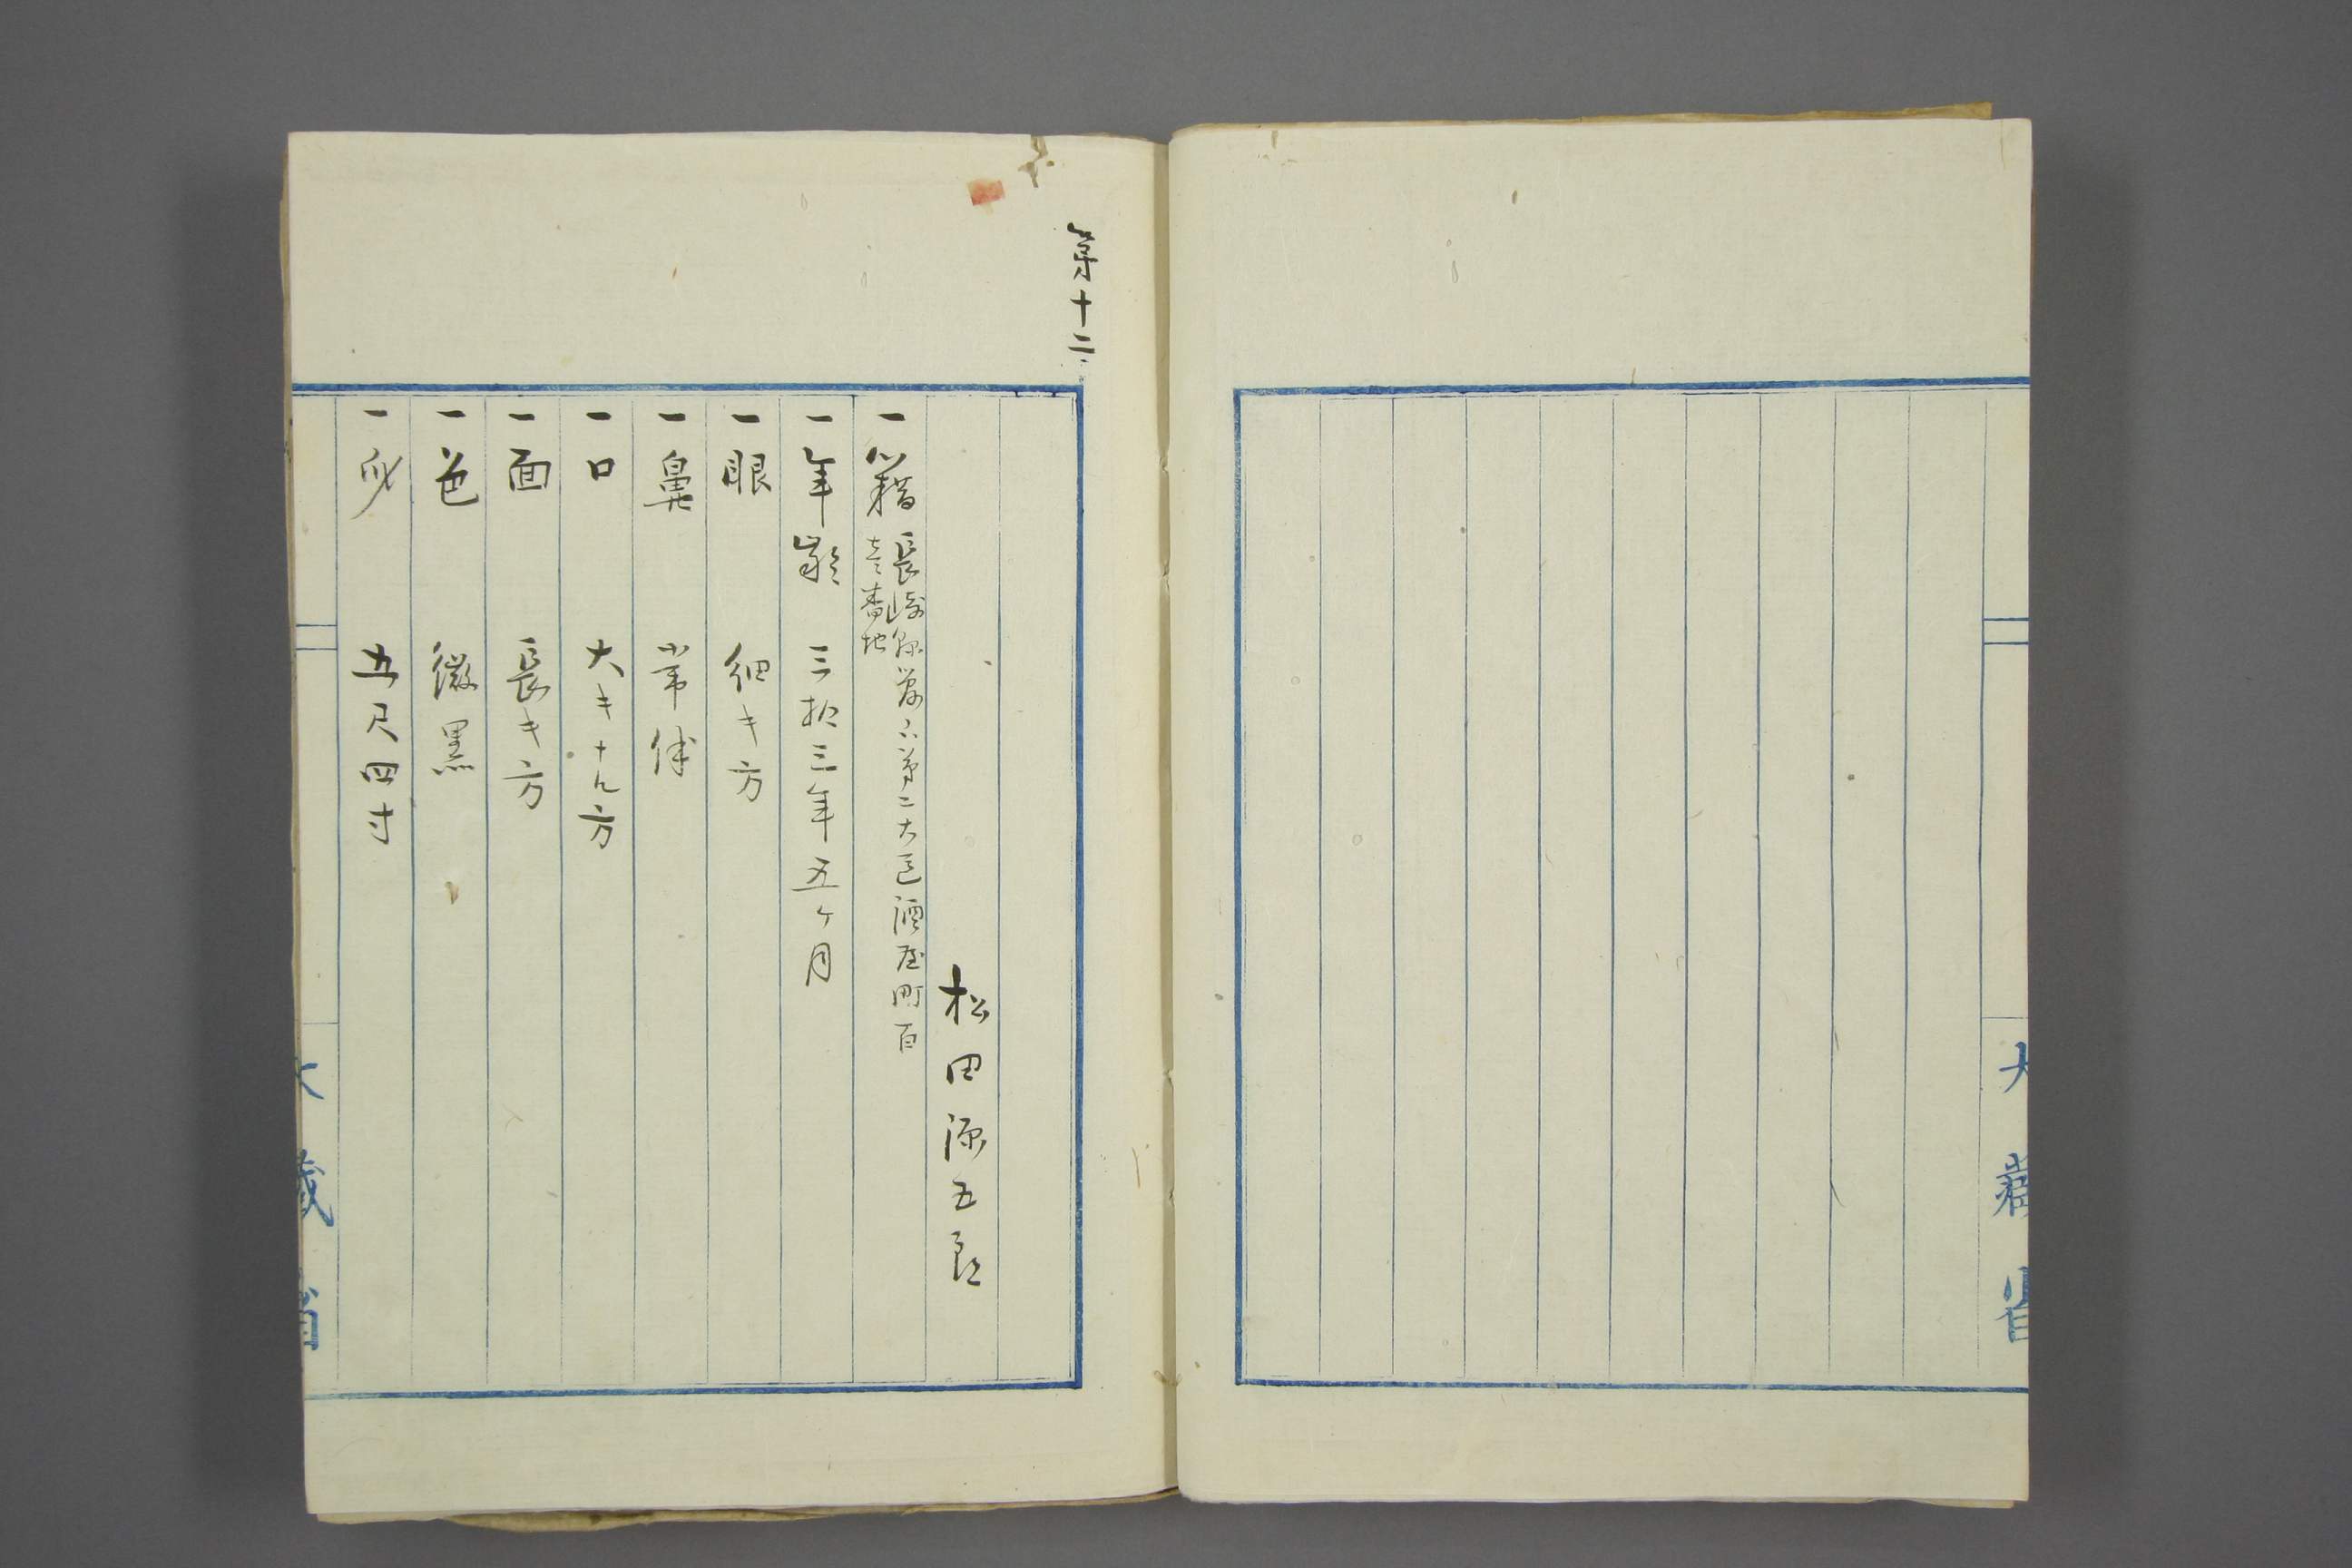 大藏省
第十二
松田源五郎
一籍 長崎縣管下第二大區酒屋町百
壱番地
一年齢 三拾三年五ヶ月
一眼 細キ方
一鼻 常体
一口 大キナル方
一面 長キ方
一色 微黒
一身 五尺四寸
大藏省